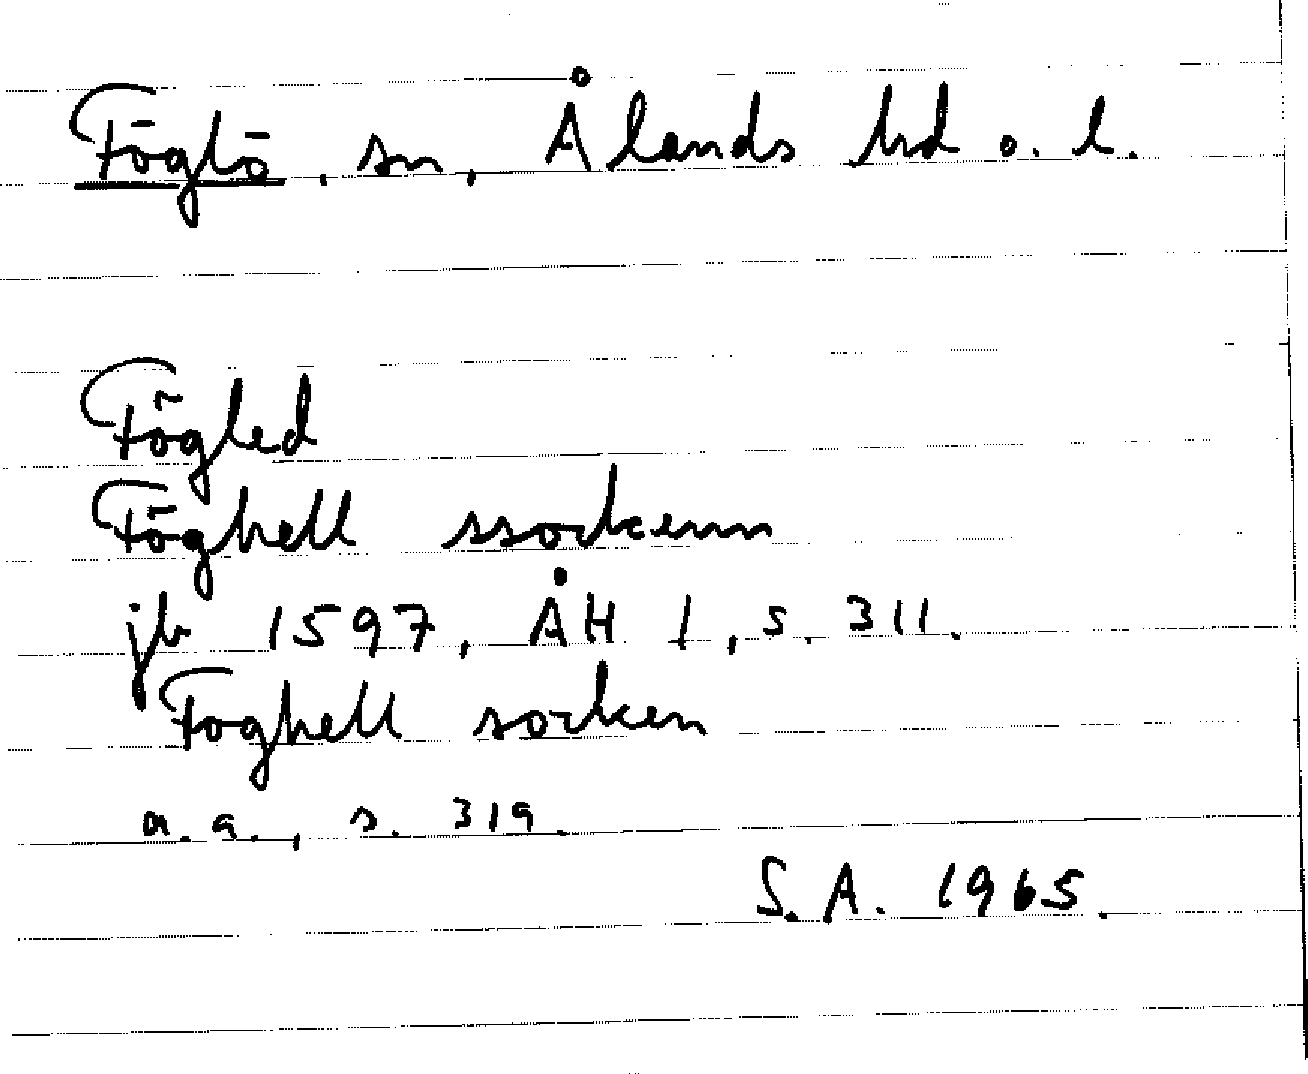 Föglö, sn, Ålands hd o. l.
Fögled
Föghell ssockenn
jb 1597, ÅH 1, s. 311.
Foghell socken
a. a., s. 319.
S. A. 1965.